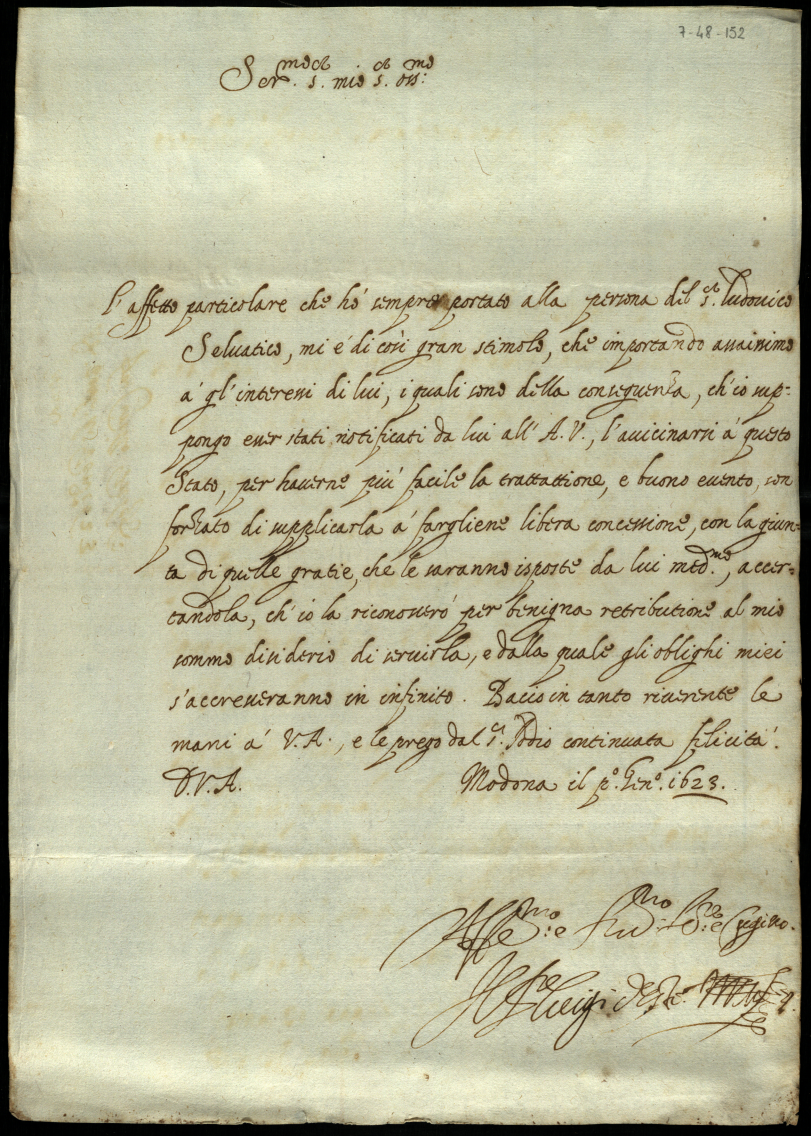 7-48-152
Ser.mo S.r mio S.r oss.mo
L'affetto particolare che hò sempre portato alla persona del S.r Ludovico
Selvatico, mi è di così gran stimolo, che importando assaissimo
à gl'interessi di lui, i quali sono della conseguenza, ch'io sup-
pongo esser stati notificati da lui all'A.V., l'avicinarsi à questo
Stato, per haverne più facile la trattatione, e buono evento, son
forzato di supplicarla à fargliene libera concessione, con la giun-
ta di quelle gratie, che le saranno isposte da lui med.mo, accer-
tandola, ch'io la riconoscerò per benigna retributione al mio
sommo disiderio di servirla, e dalla quale gli oblighi miei
s'accresceranno in infinito. Baccio in tanto riverente le
mani à V.A., e le prego dal S.r Iddio continuata felicità.
D.V.A. Modona il p.o Gen.o 1623.
Aff.mo e Ser.mo Ser.re e Cugino.
Luigi d'Este